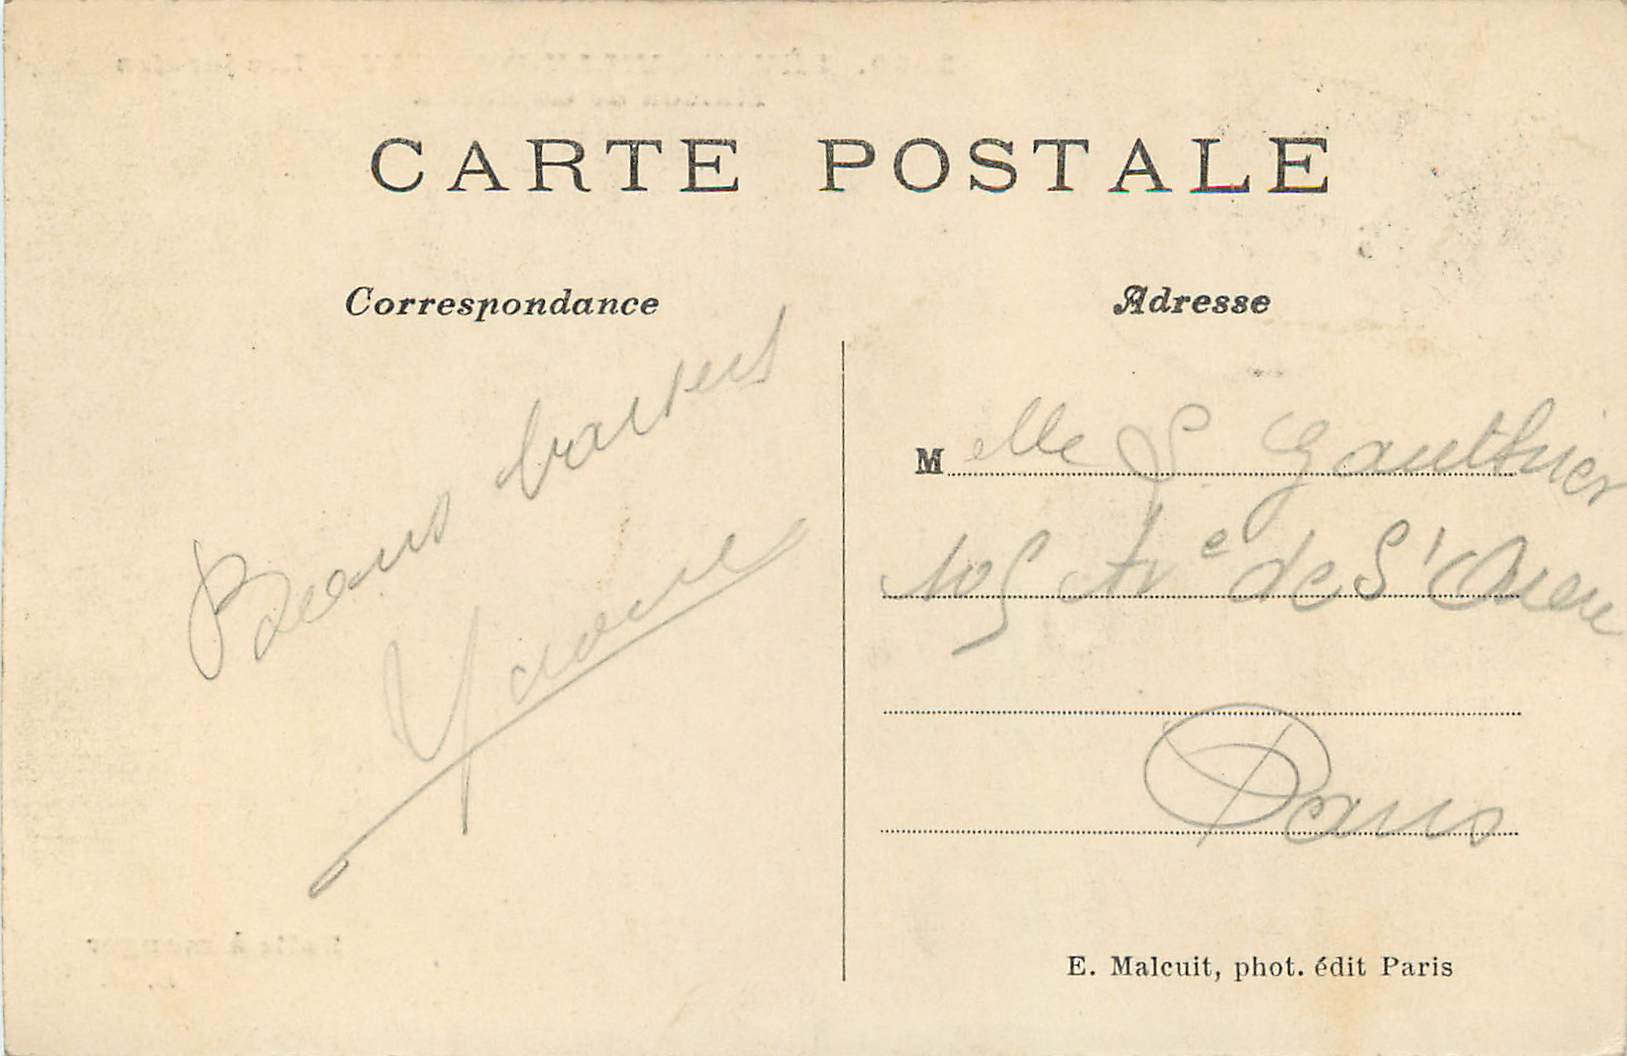 CARTE POSTALE
Correspondance
Beaux baisers
Yvonne
Adresse
Melle S. Gauthier
105 Ave de St Ouen
Paris
E. Malcuit, phot. édit Paris